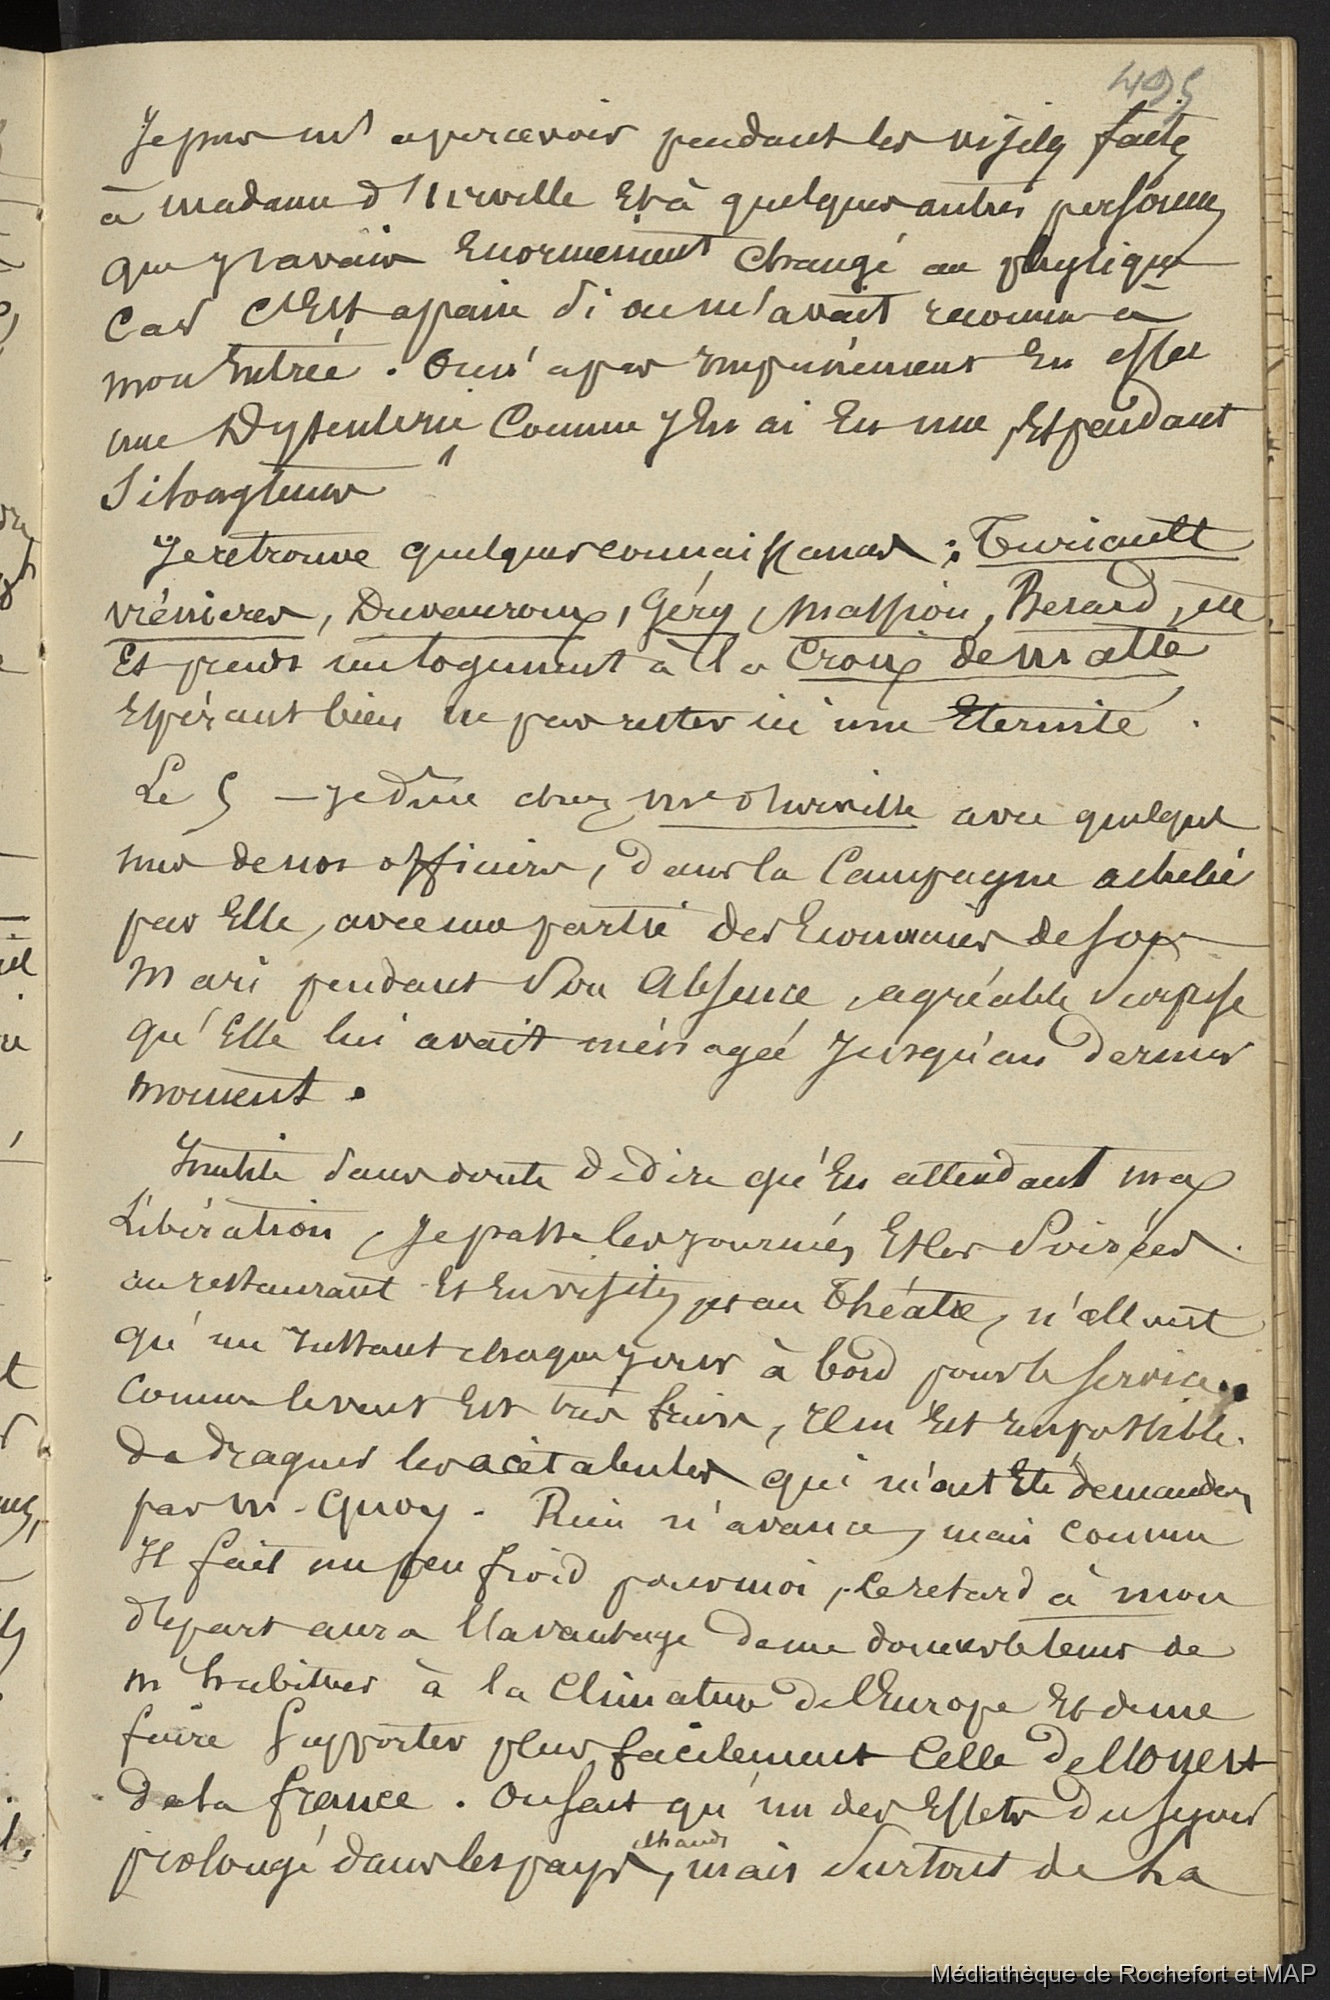 495
Je pus m'apercevoir pendant les visites faites
à madame d'Urville Et à quelques autres personnes
que j'avais Enormement changé au physique
Car c'Est apaine si on m'avait reconnu à
mon Entrée. On n'a pas impunément En effet
une Dysenterie, Comme j'En ai Eu une, Et pendant
si longtems
Je retrouve quelques connaissances : Turiault
, Duvauroux, Géry, Massiou, Besard, etc
Et prends un logement à la Croix de malte
Espérant bien ne pas rester ici une Eternité.
Le 5 — je dîne chez Mme d'Urville avec quelques
uns de nos officiers, dans la Campagne achetée
par Elle, avec une partie des Economies de son
Mari pendant son Absence, agréable surprise
qu'Elle lui avait ménagée jusqu'au dernier
moment.
Inutile sans doute de dire qu'En attendant ma
Libération, Je passe les journées Et les Soirées
au restaurant Et En visites, et au Théatre, n'allant
qu'un instant chaque jour à bord pour le service.
Comme le vent Est très frais, il m'Est impossible
de draguer les acétabules qui m'ont Eté demandées
par Mr. Quoy. Rien n'avance, mais comme
Il fait un peu froid pour moi, le retard à mon
départ aura l'avantage de me donner le tems de
m'habituer à la Climature de l'Europe Et de me
faire supporter plus facilement Celle de l'Ouest
de la france. On sait qu'un des Effets du séjour
prolongé dans les pays chauds, mais surtout de la
Médiathèque de Rochefort et MAP